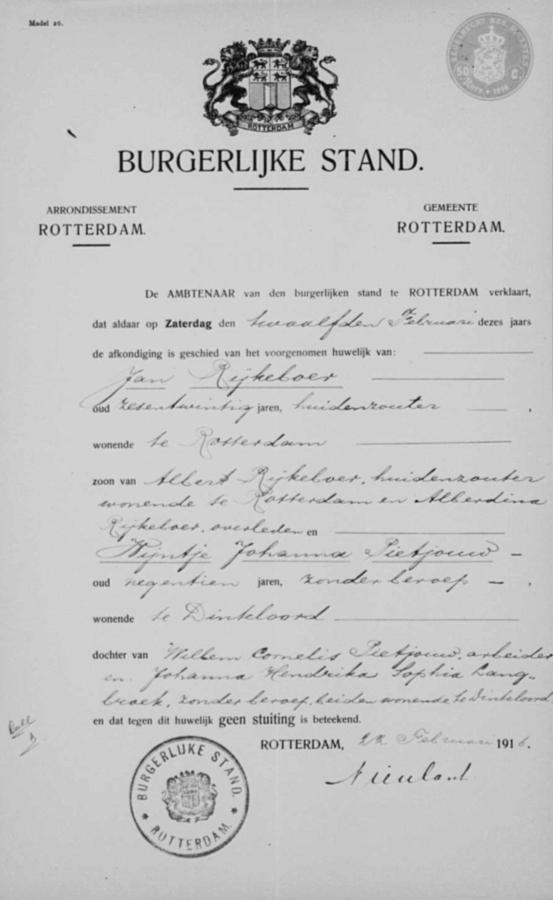 Model 26.
50 C.
ROTTERDAM
BURGERLIJKE STAND.
ARRONDISSEMENT
ROTTERDAM.
GEMEENTE
ROTTERDAM.
De AMBTENAAR van den burgerlijken stand te ROTTERDAM verklaart,
dat aldaar op Zaterdag den twaalfden Februari dezes jaars
de afkondiging is geschied van het voorgenomen huwelijk van:
Jan Rijkeboer
oud zesentwintig jaren, huidenzouter
wonende te Rotterdam
zoon van Albert Rijkeboer, huidenzouter
wonende te Rotterdam en Alberdina
Rijkeboer, overleden en
Wijntje Johanna Pietjouw
oud negentien jaren, zonder beroep
wonende te Dinteloord
dochter van Willem Cornelis Pietjouw, arbeider
en Johanna Hendrika Sophia Lang-
broek, zonder beroep, beiden wonende te Dinteloord
en dat tegen dit huwelijk geen stuiting is beteekend.
ROTTERDAM, 22 Februari 1916.
BURGERLIJKE STAND.
* ROTTERDAM. *